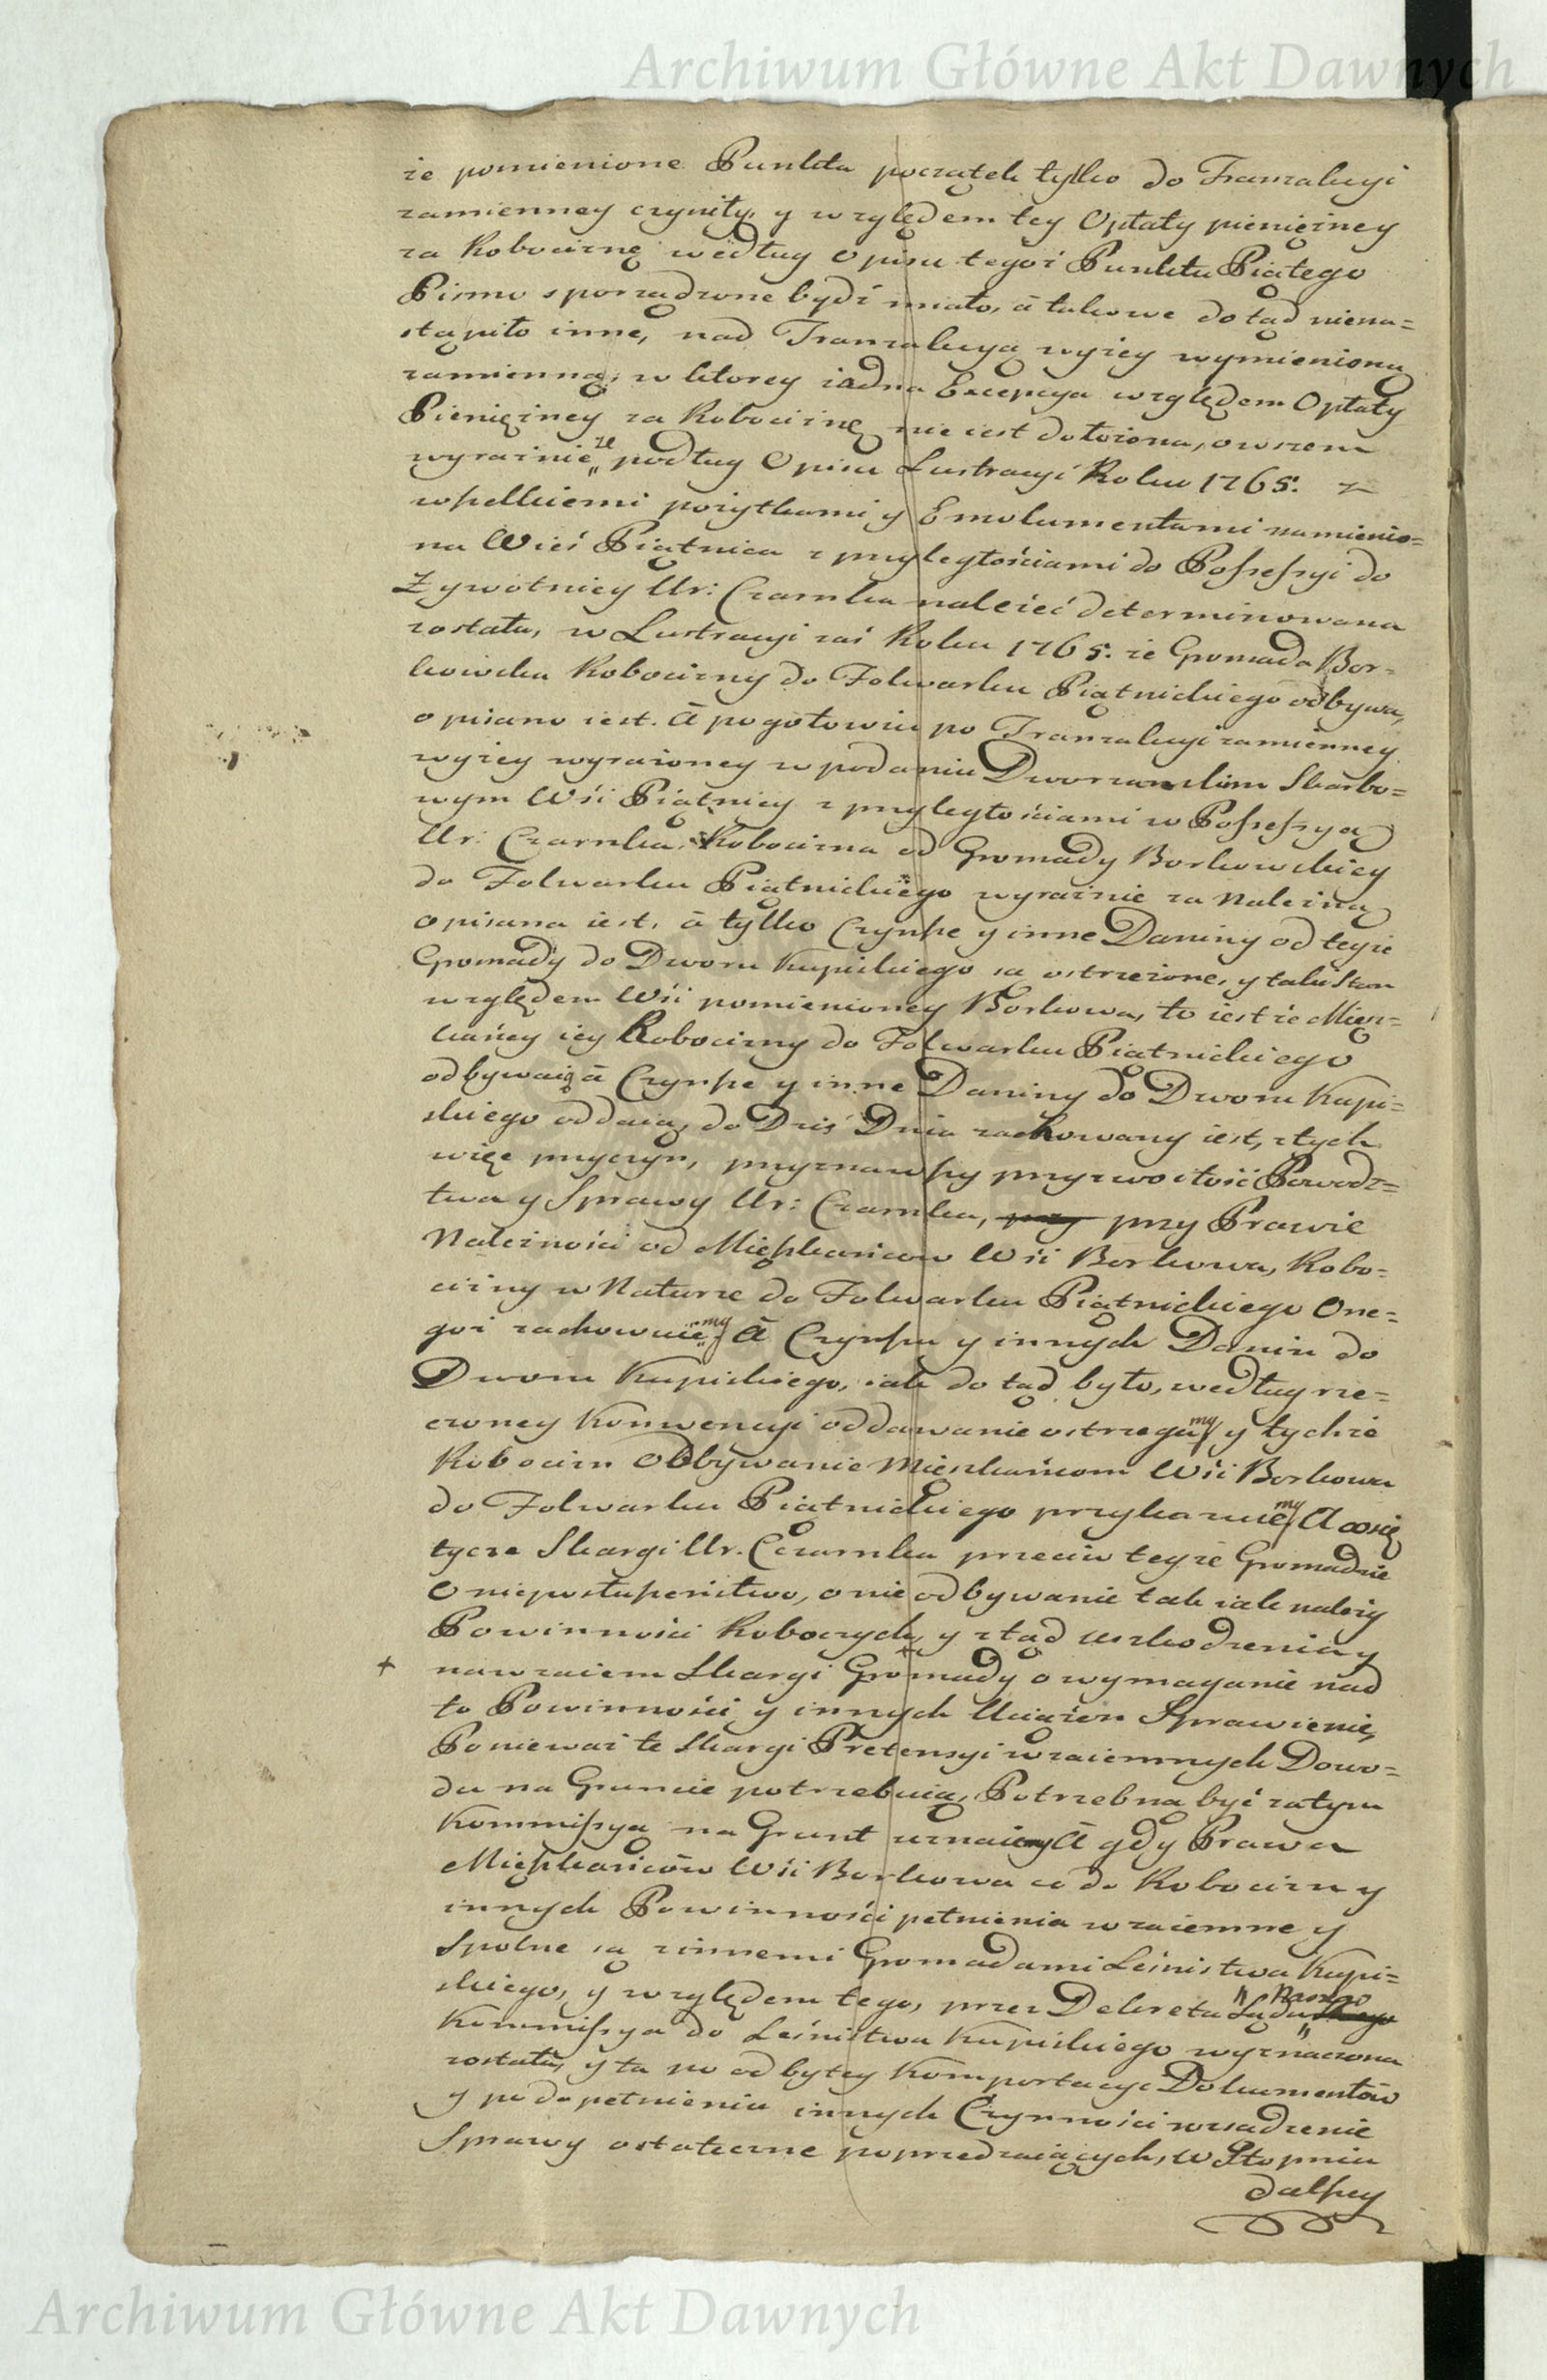 Archiwum Główne Akt Dawnych
że pomienione Punkta początek tylko do Tranzakcyi
zamienney czyniły, y względem tey Opłaty pieniężney
za Robociznę według opisu tegoż Punktu Piątego
Pismo sporządzone bydź miało, á takowe dotąd niena=
stąpiło inne, nad Tranzakcyą wyżey wymienioną
zamienną, w ktorey żadna Excepcya względem Opłaty
Pieniężney za Robociznę nie iest dołożona, owszem
wyraźnie „że podług Opisu Lustracyi Roku 1765. z
wszelkiemi pożytkami y Emolumentami namienio=
na Wieś Piątnica z przyległościami do Possessyi do
Zywotniey Ur: Czarnka należeć determinowana
została, w Lustracyi zaś Roku 1765. że Gromada Bor=
kowska Robocizny do Folwarku Piątnickiego odbywa,
opisano iest. á pogotowiu po Tranzakcyi zamienney
wyżey wyrażoney w podaniu Dworzanskim Skarbo=
wym Wśi Piątnicy z przyległościami w Possessyą
Ur: Czarnka, Robocizna od Gromady Borkowskiey
do Folwarku Piątnickiego wyraźnie za Należną
opisana iest, á tylko Czynsze y inne Daniny od teyże
Gromady do Dworu Kupiskiego są ostrzeżone, y taki Stan
względem Wśi pomienioney Borkowa, to iest że Miesz=
kańcy iey Robocizny do Folwarku Piatnickiego
odbywaią á Czynsze y inne Daniny do Dworu Kupi=
skiego oddaią, do Dziś Dnia zachowany iest, z tych
więc przyczyn, przyznawszy przyzwoitość Powodz=
twa y Sprawy Ur: Czarnka, przy przy Prawie
Należności od Mieszkańcow Wśi Borkowa, Robo=
cizny w Naturze do Folwarku Piątnickiego One=
goż zachowuiemy, á Czynszu y innych Danin do
Dworu Kupiskiego, iak dotąd było, według rze=
czoney Konwencyi oddawanie ostrzegamy y tychże
Robocizn Odbywanie Mieszkańcom Wśi Borkowa
do Folwarku Piatnickiego przykazuiemy A co się
tycze Skargi Ur. Czarnka przeciw teyże Gromadzie
O nieposłuszeństwo, o nie odbywanie tak iak należy
Powinności Roboczych, y ztąd uszkodzenia y
+ nawzaiem Skargi Gromady o wymaganie nad
to Powinności y innych Uciążen Sprawienie,
Ponieważ te Skargi Pretensyi wzaiemnych Dowo=
du na Gruncie potrzebuią, Potrzebna być zatym
Kommissya na Grunt uznaiemy á gdy Prawa
Mieszkańcow Wśi Borkowa co do Robocizn y
innych Powinności pełnienia wzaiemne y
Spolne są z innemi Gromadami Leśnistwa Kupi=
skiego, y względem tego, przez Dekreta Sądu „Naszego
Kommissya do Leśnistwa Kupiskiego wyznaczona
została, y ta po odbytey Komportacyi Dokumentów
y po dopełnieniu innych Czynności osadzenie
Sprawy ostateczne poprzedzaiących, w Stopniu
dalszy
Archiwum Główne Akt Dawnych